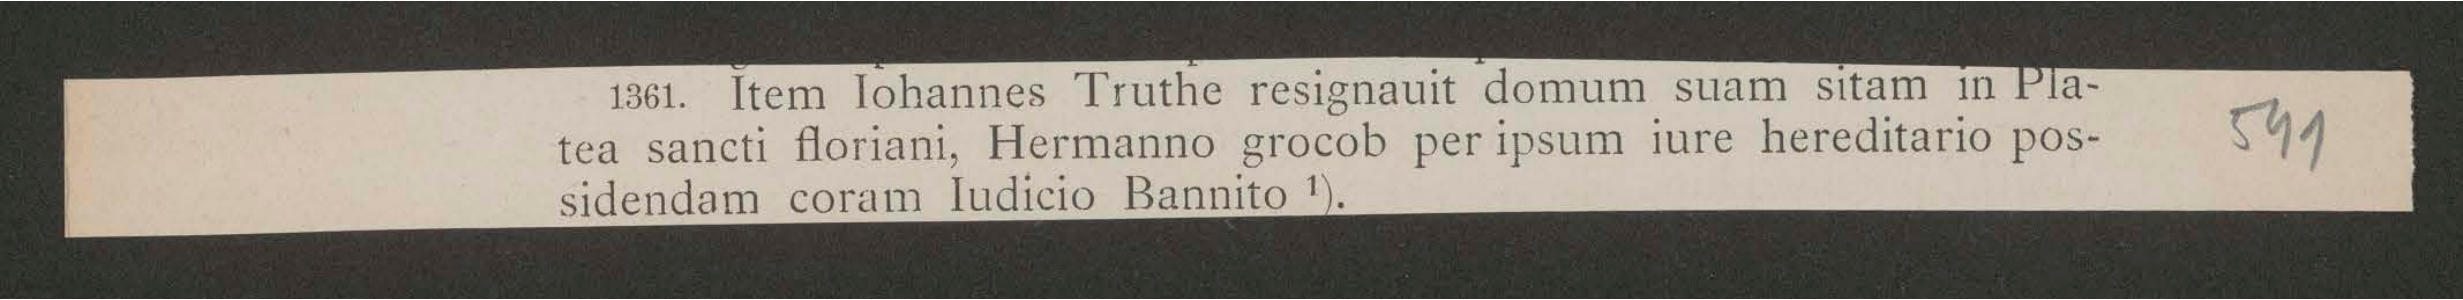 1361. Item Iohannes Truthe resignauit domum suam sitam in Pla-
tea sancti floriani, Hermanno grocob per ipsum iure hereditario pos-
sidendam coram Iudicio Bannito ¹).
541